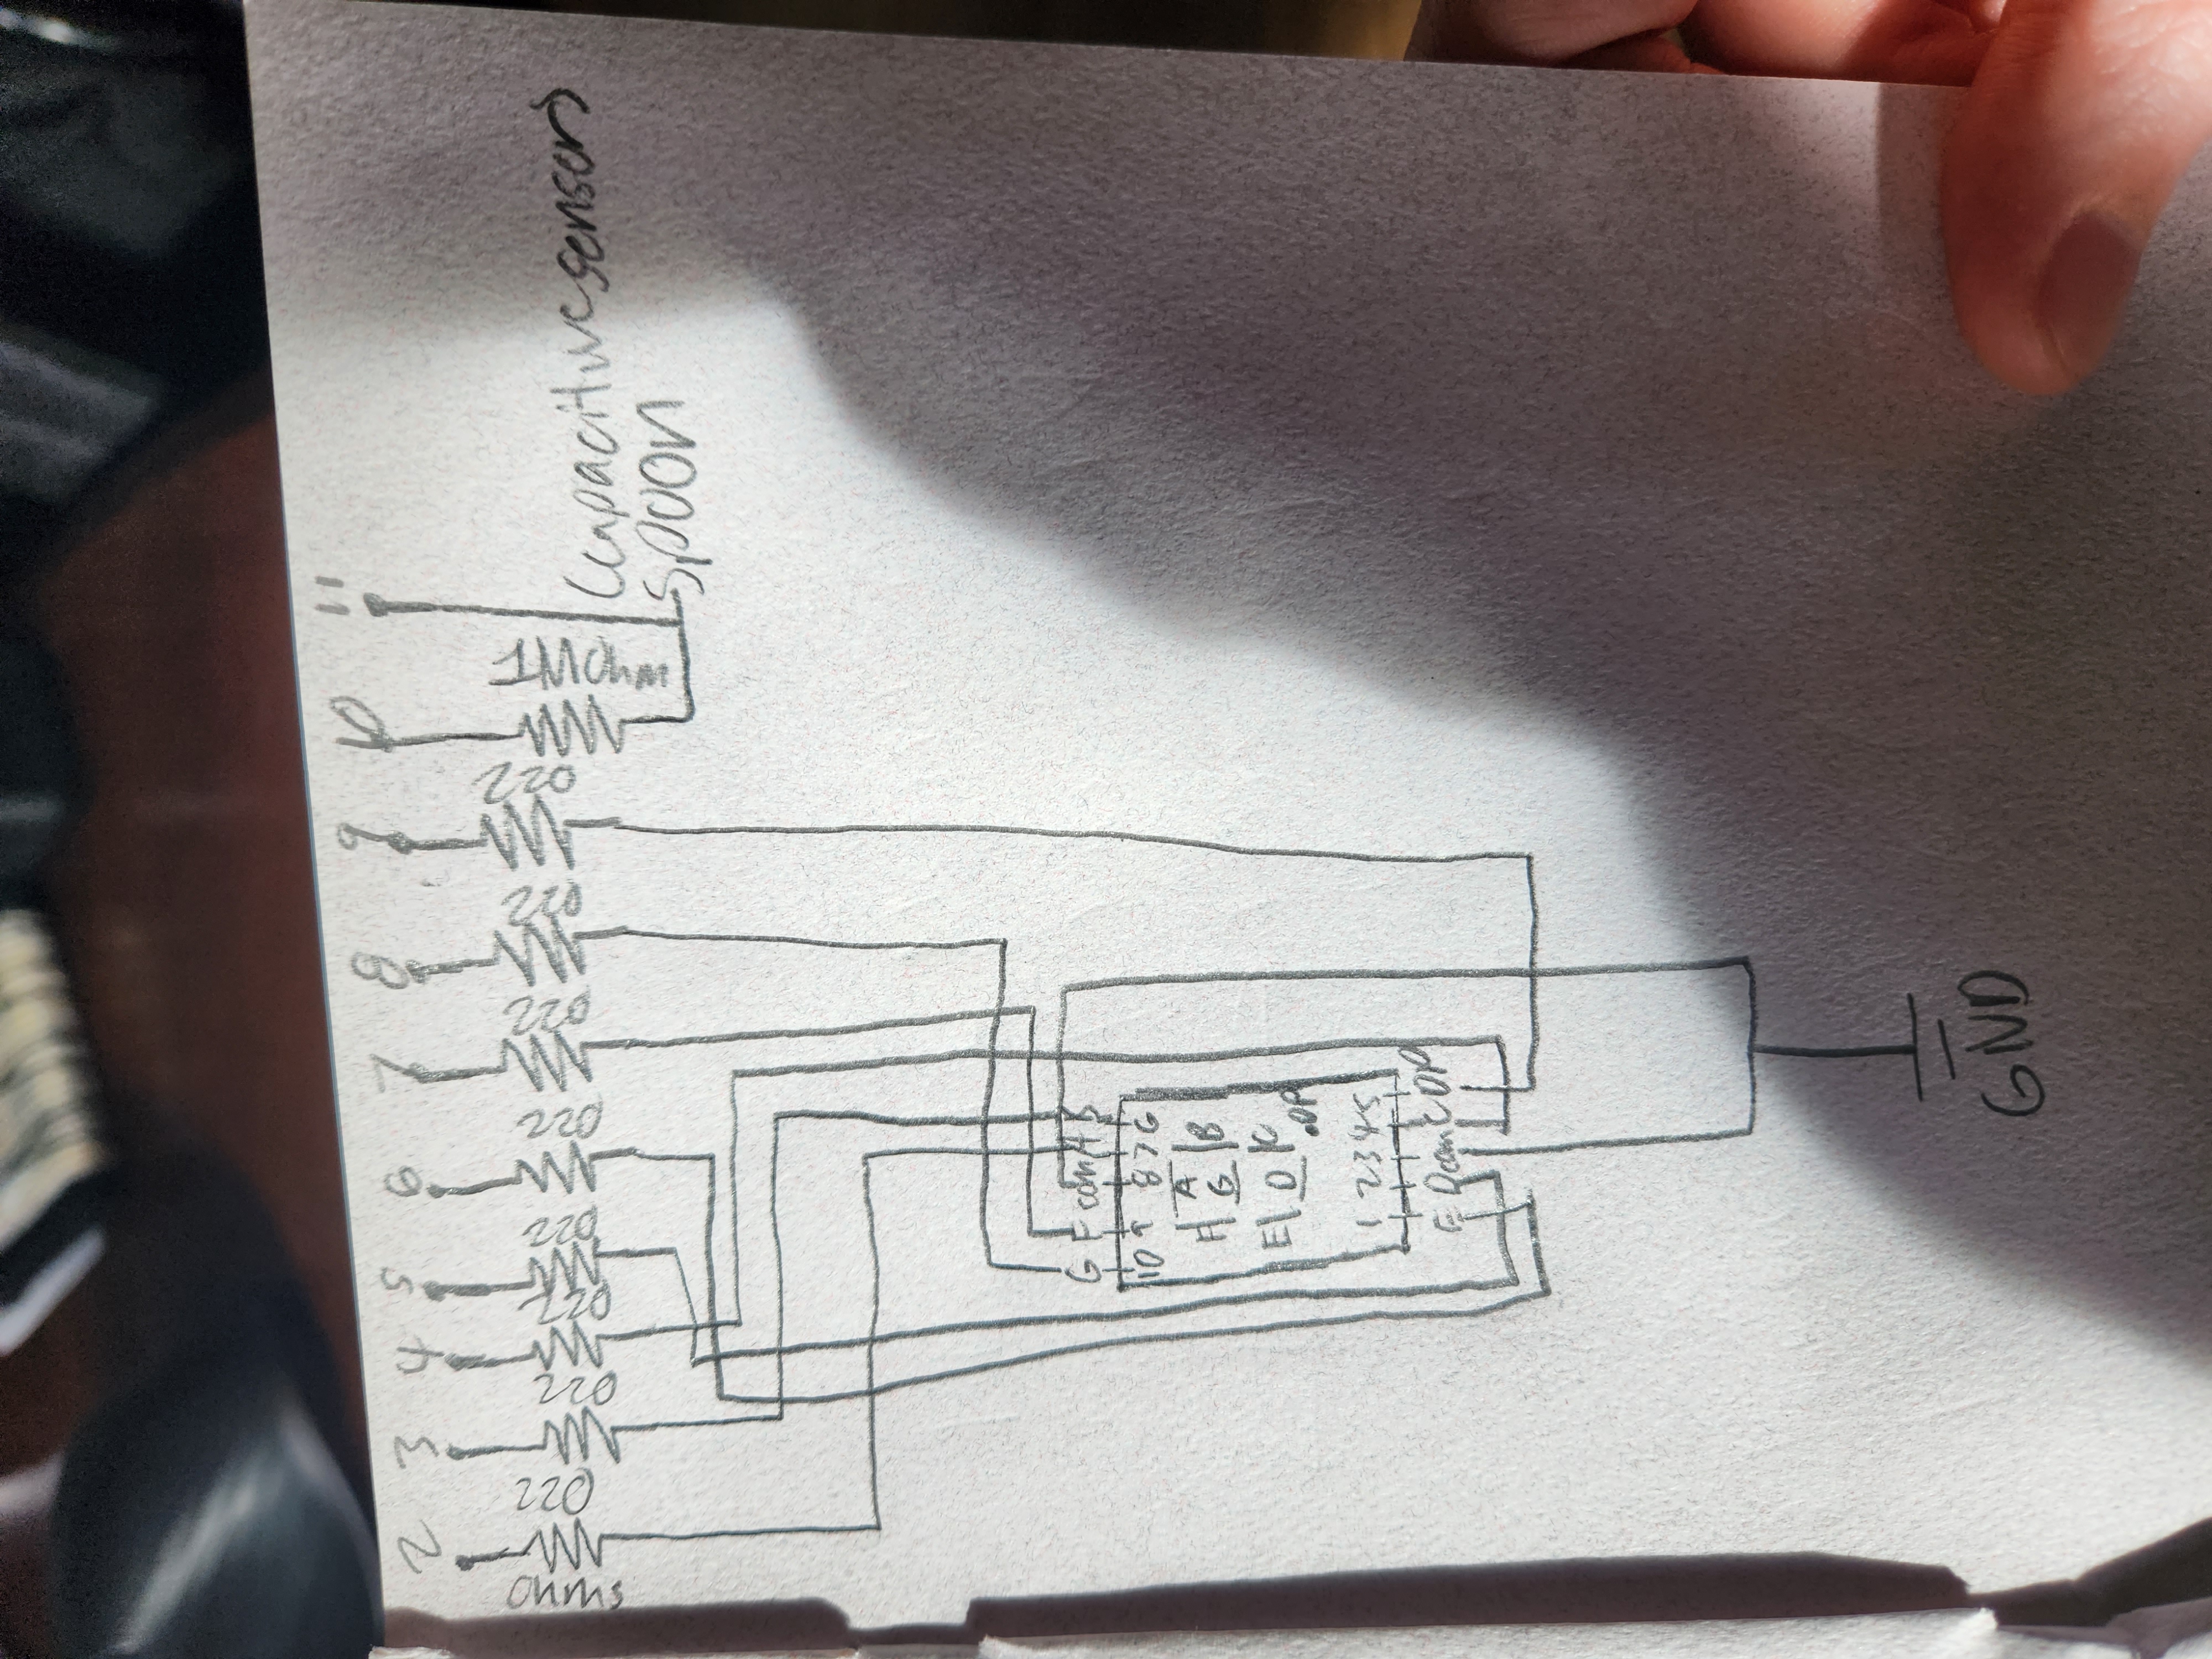 2 3 4 5 6 7 8 9 10 11
ohms 220 220 220 220 220 220 220 220 1M ohm
(capacitive sensor)
spoon
G F com A B
10 9 8 7 6
A
F B
G
E D C
.DP
1 2 3 4 5
E D com C DP
GND